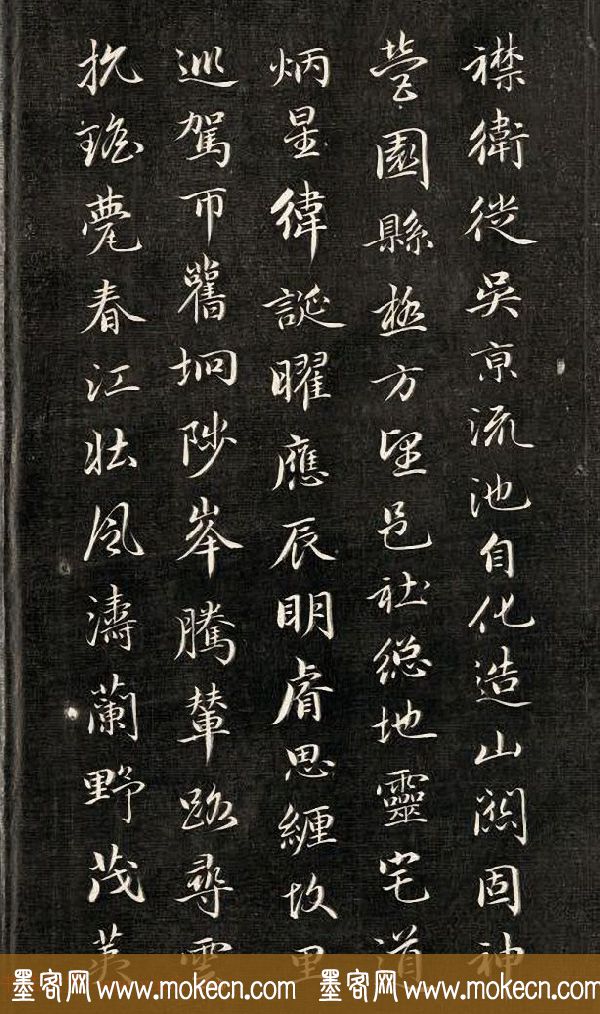 襟衛徙吳京流池自化造山關固神
營園縣極方望邑社總地靈宅道
炳星緯誕曜應辰明睿思纏故里
巡駕帀舊坰陟峯騰輦路尋雲
抗瑤甍春江壯風濤蘭野茂荑
墨客网 www.mokecn.com 墨客网 www.mokecn.com